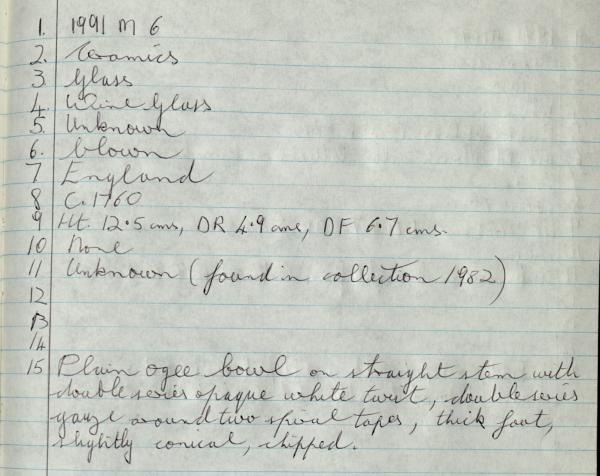 1. 1991 M 6
2. Ceramics
3 Glass
4. Wine Glass
5. Unknown
6. blown
7 England
8 C. 1760
9 Ht. 12.5 cms, DR 4.9 cms, DF 6.7 cms.
10 None
11 Unknown (found in collection 1982)
12
13
14
15 Plain ogee bowl on straight stem with
double series opaque white twist, double series
gauze around two spiral tapes, thick foot,
slightly conical, chipped.